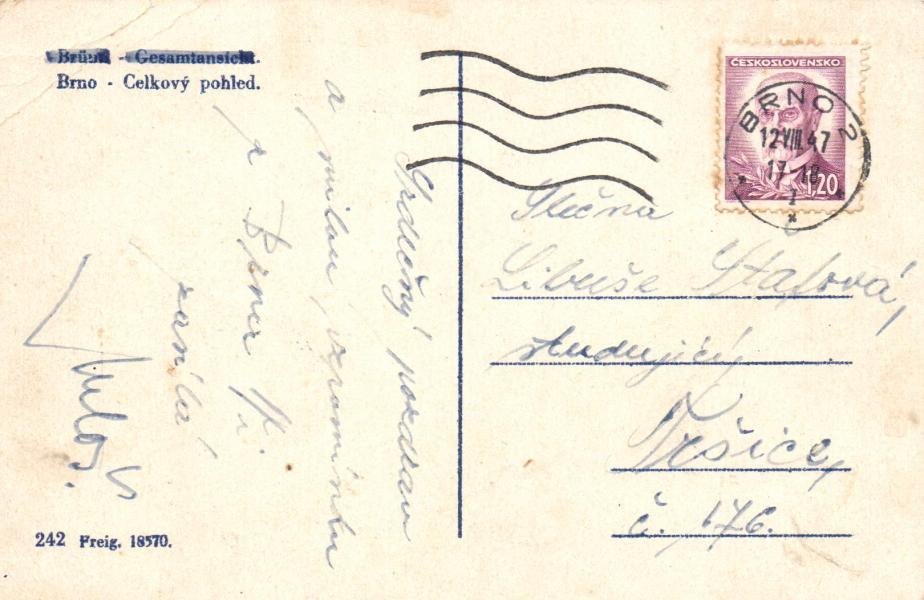 Brünn - Gesamtansicht.
Brno - Celkový pohled.
Srdečný pozdrav
a milou vzpomínku
z Brna Ti
zasílá
Miloš
ČESKOSLOVENSKO
1,20
BRNO 2
12.VIII.47
17-18
Slečna
Libuše
studující,
č. 176.
242 Freig. 18570.